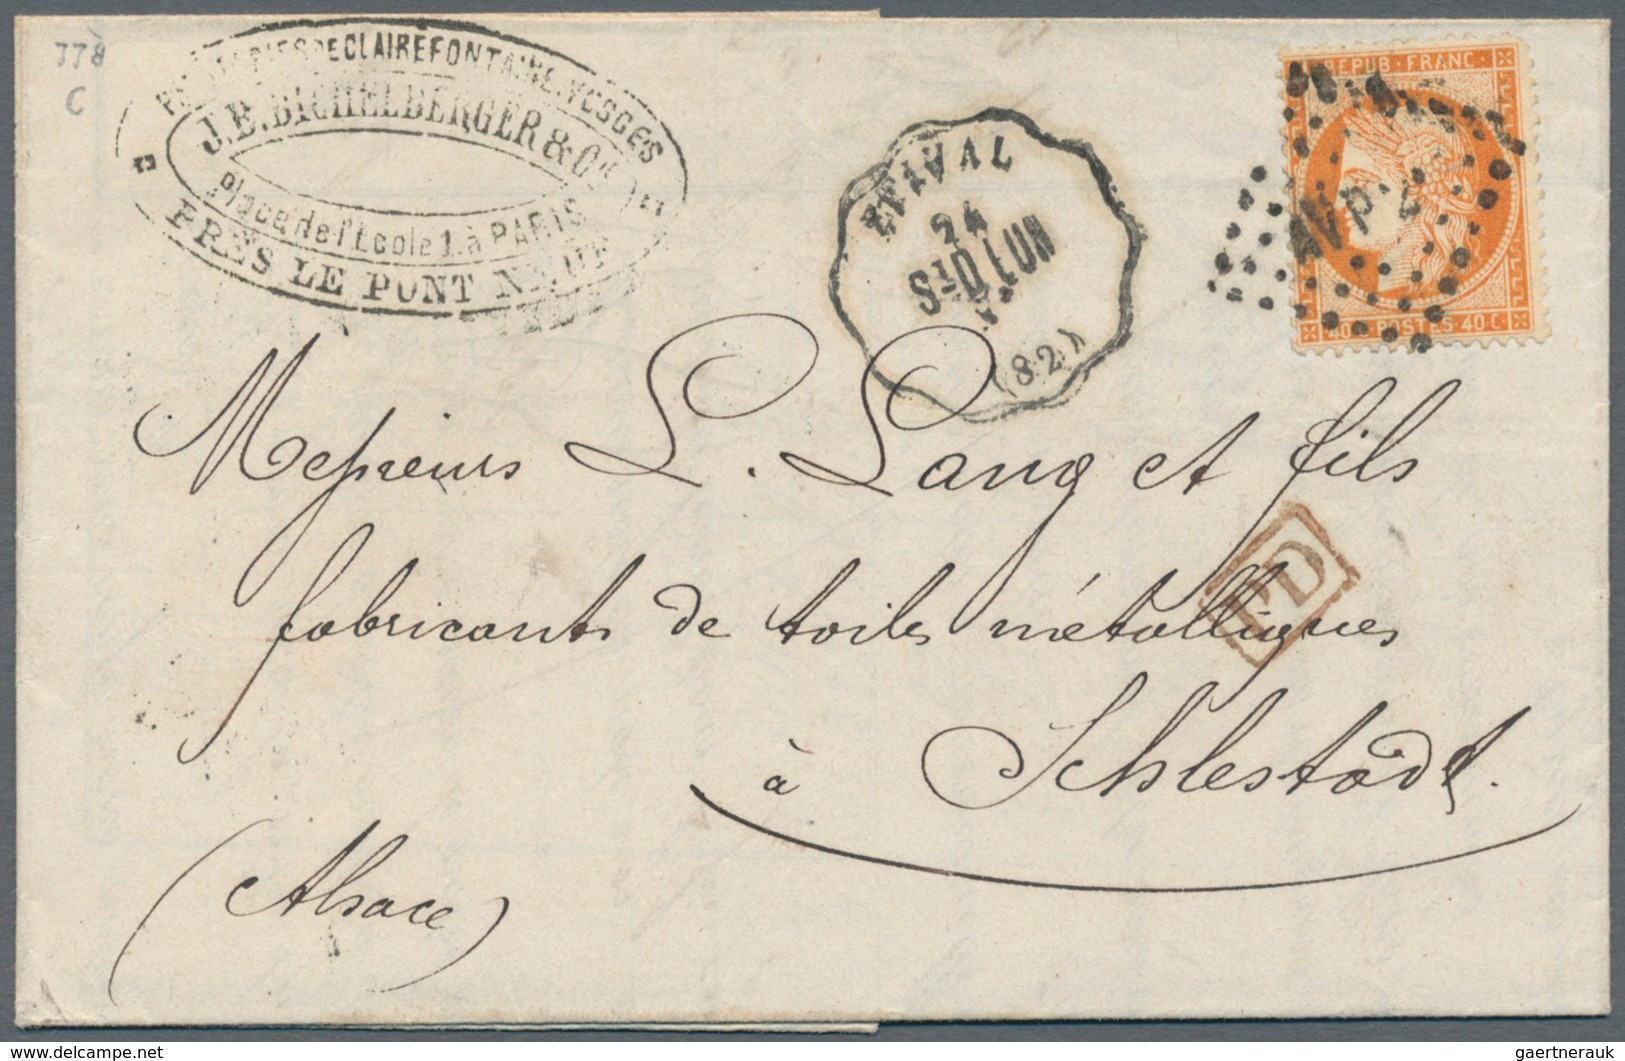 778
C
PAPETERIES DE CLAIREFONTAINE, VOSGES
J.B. BICHELBERGER & Cie
Place de l'Ecole 1. à PARIS
PRÈS LE PONT NEUF
ETIVAL
24
NUL
St D
(82)
REPUB. FRANC.
40 C. POSTES 40 C
Messieurs L. Lang et fils
PD
fabricants de toiles métalliques
à Schlestadt.
(Alsace)
gaertnerauk
delcampe.net